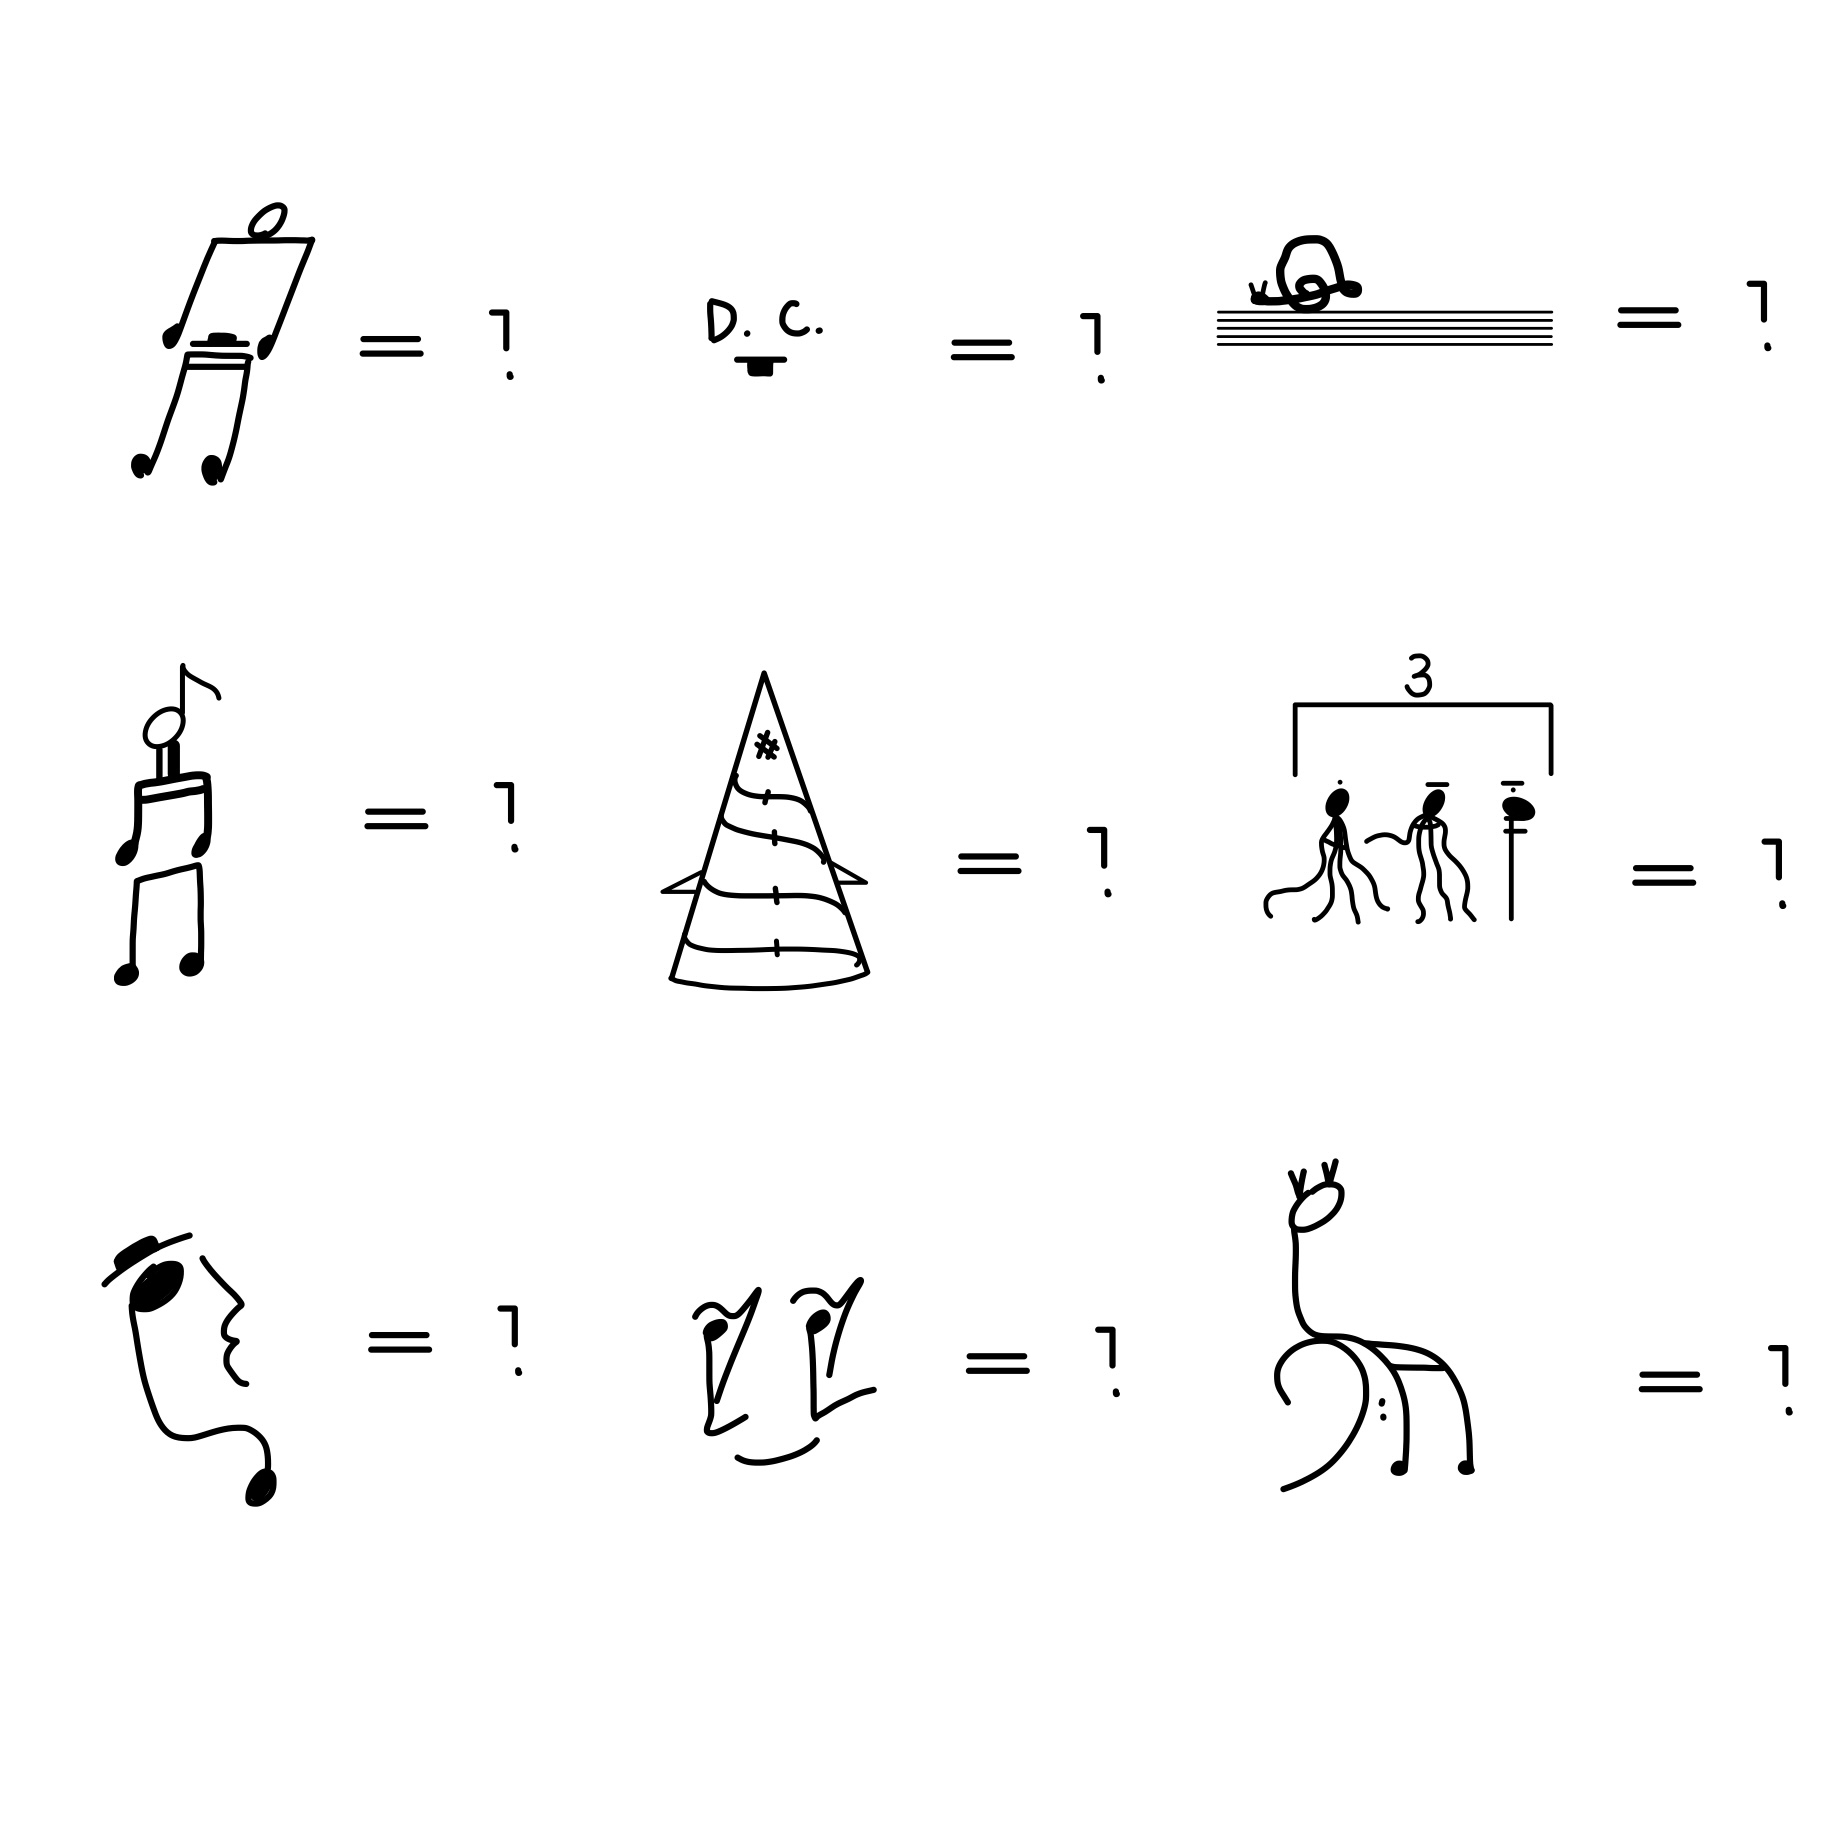 = ?
D. C. = ?
= ?
= ?
= ?
3
= ?
= ?
= ?
= ?